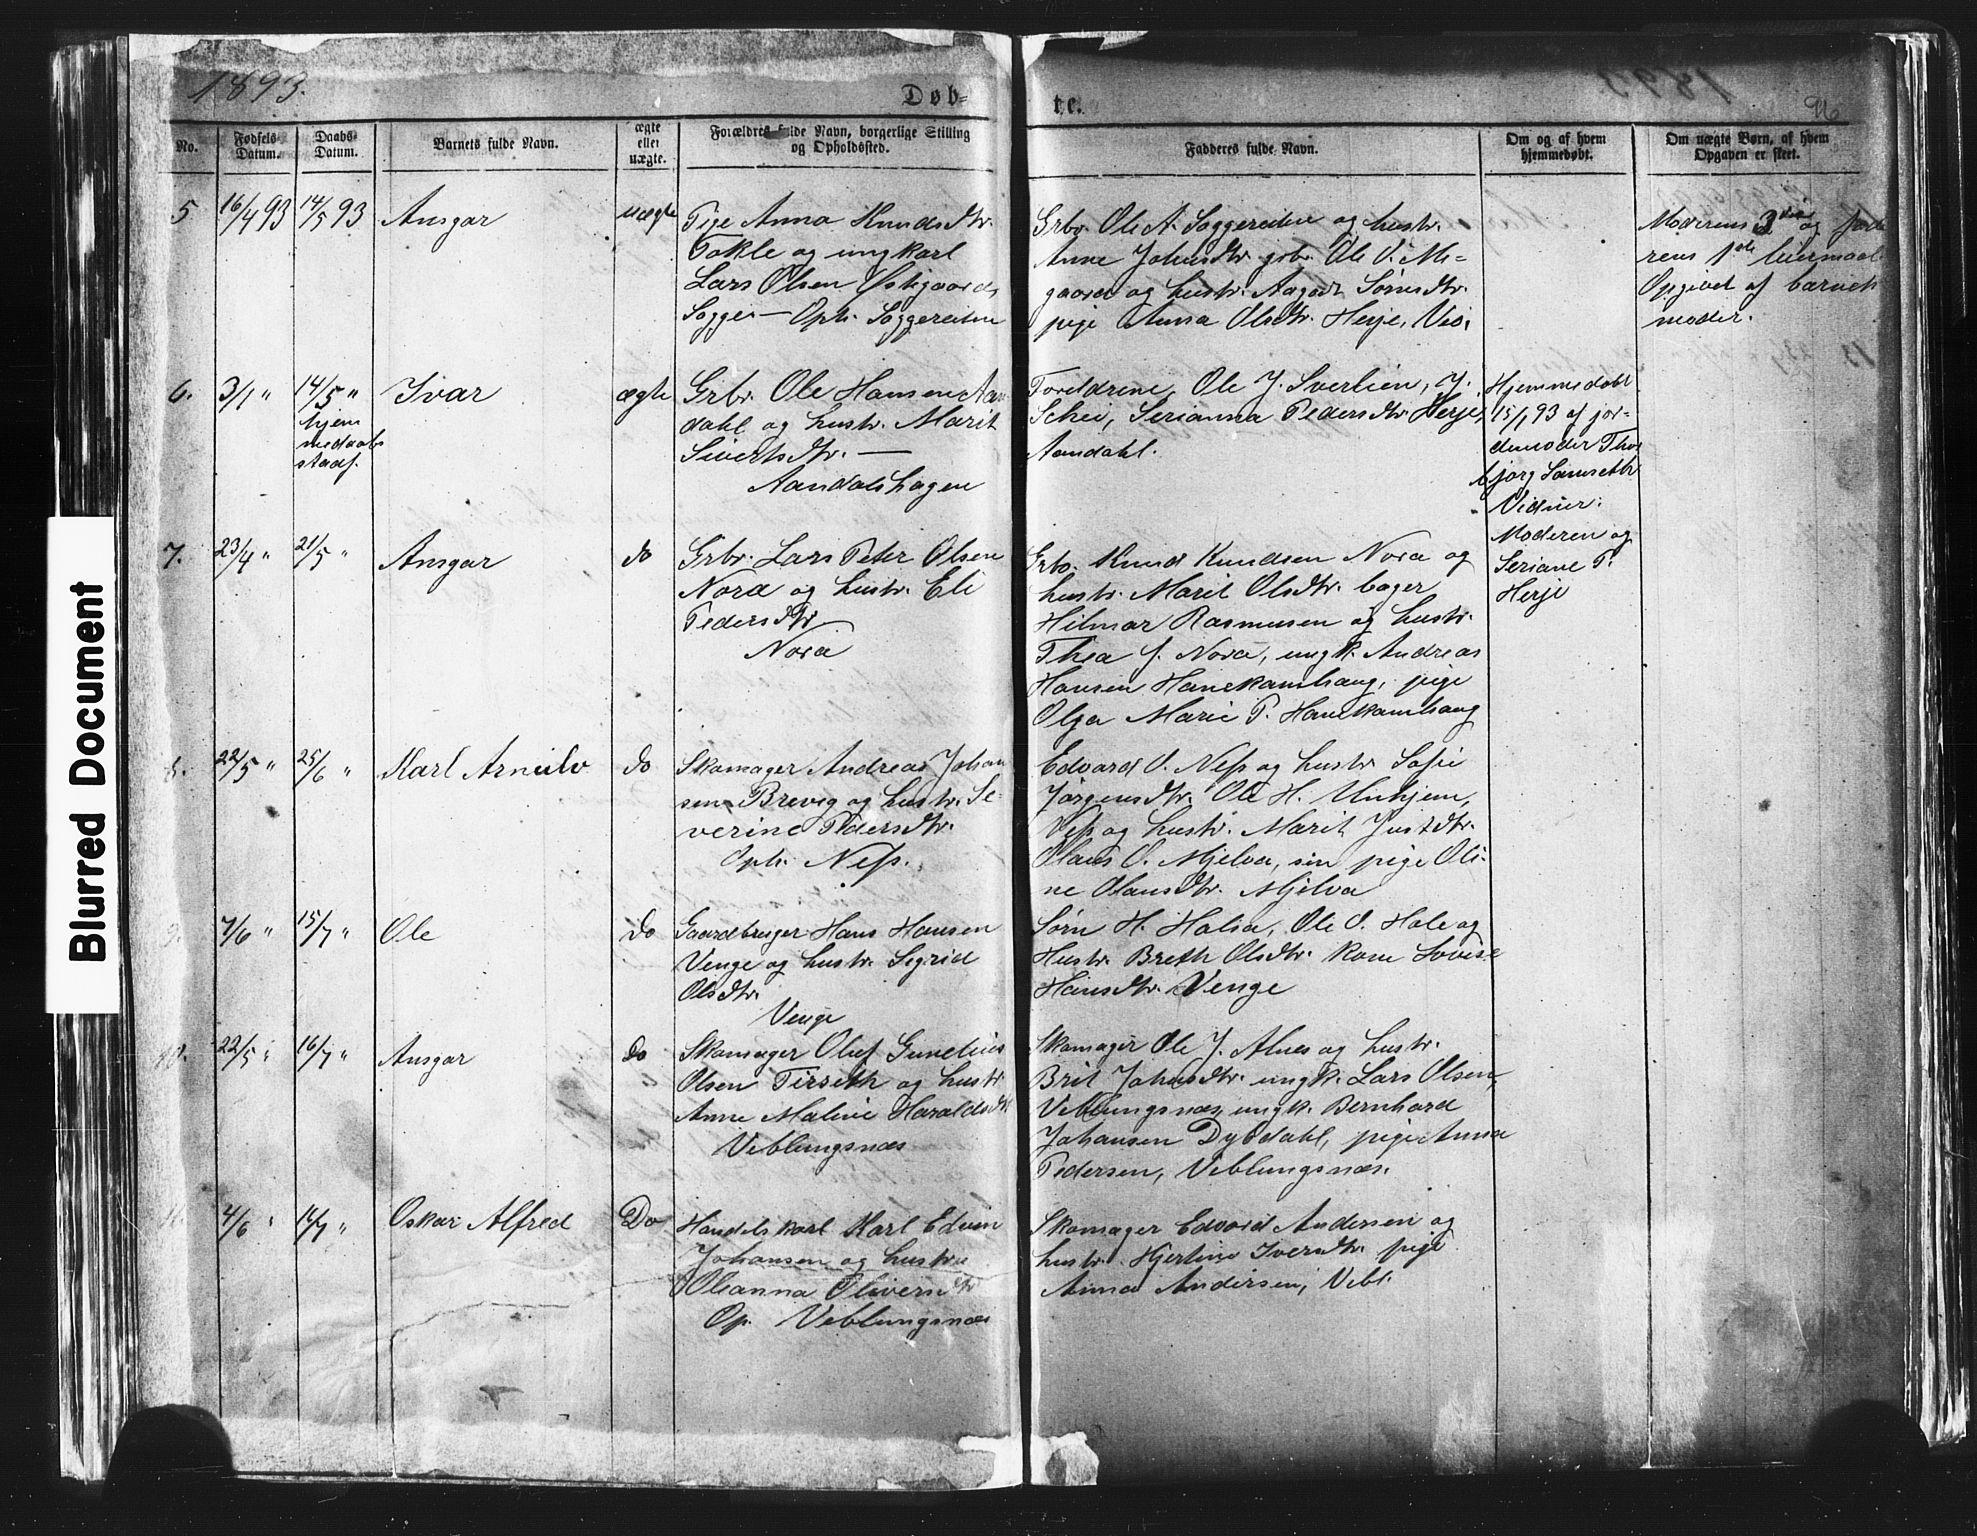 1893.
Døb=
te.
96
No.
Fødsels Datum.
Daabs- Datum.
Barnets fulde Navn.
ægte eller uægte.
Forældres fulde Navn, borgerlige Stilling og Opholdssted.
Fadderes fulde Navn.
Om og af hvem hjemmedøbt.
Om uægte Børn, af hvem Opgaven er skeet.
5 16/4 93 14/5 93 Ansgar uægte
Pige Anna Knudsdtr.
Tokle og ungkarl
Lars Olsen Østigaards
Sogge — Oph. Soggereiten
Grbr. Ole A. Soggereiten og hustr.
Anne Johnsdtr. grbr. Ole O. Mi=
gaard og hustr. Aagodt Sørnsdtr.
pige Anna Olsdtr. Herje, Vio.
Moderens 3die og fade
rens 1ste leiermaal.
Opgivet af barnets
moder.
6. 3/1 " 14/5 " Ivar ægte
hjem
medaabs
stadf.
Grbr. Ole Hansen Aan
dahl og hustr. Marit
Sivertsdtr. —
Aandalshagen
Foreldrene, Ole J. Sverlien, J.
Schei, Serianna Pedersdtr. Herje,
Aandahl.
Hjemmedøbt
15/1 93 af jor-
demoder Thor
bjorg Samseth
Vidner:
Moderen og
Seriane P.
Herje
7. 23/4 " 21/5 " Ansgar do
Grbr. Lars Peter Olsen
Nora og hustr. Eli
Pedersdtr.
Nora
Grbr. Knud Knudsen Nora og
hustr. Marit Olsdtr. bager
Hilmar Rasmusen og hustr.
Thea f. Nora, ungk. Andreas
Hansen Hanekamhaug, pige
Olga Marie P. Hanekamhaug
8. 22/5 " 25/6 " Karl Arneilv do
Skomager Andreas Johan
sen Brevig og hustr. Se-
verine Pedersdtr.
Oph. Neſs.
Edvard O. Neſs og hustr. Sofie
Jørgensdtr. Ole H. Unhjem,
Neſs og hustr. Marit Justdtr.
Olaus O. Mjelva, sin pige Oli-
ne Olausdtr. Mjelva
9. 7/6 " 15/7 " Ole do
Gaardbruger Hans Hansen
Venge og hustr. Sigrid
Olsdtr.
Venge
Sørn H. Halsa, Ole O. Hole og
Hustr. Breth Olsdtr. kone Lovise
Hansdtr. Venge
10. 22/5 " 16/7 " Ansgar do
Skomager Oluf Gunelius
Olsen Tirseth og hustr.
Anne Maline Haraldsdtr
Veblungsnæs
Skomager Ole J. Alnes og hustr.
Brit Johnsdtr. ungk. Lars Olsen,
Veblungsnæs, ungk. Bernhard
Johansen Dybdahl, pige Anna
Pedersen, Veblungsnæs.
4/6 " 16/7 " Oskar Alfred Do
Handelskarl Karl Edvin
Johansen og hustru
Oleanna Oliversdtr
Op. Veblungsnæs
Skomager Edvard Andersen og
hustr. Hjertine Iversdtr. pige
Anna Andersen, Vebl.
Blurred Document